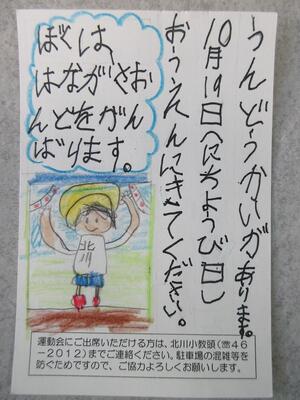 うんどうかいがあります。
10月19日(にちようび日)
おうえんにきてください。
ぼくは、
はながさお
んどをがん
ばります。
北川
運動会にご出席いただける方は、北川小教頭(☎46
－2012)までご連絡ください。駐車場の混雑等を
防ぐためですので、ご協力よろしくお願いします。